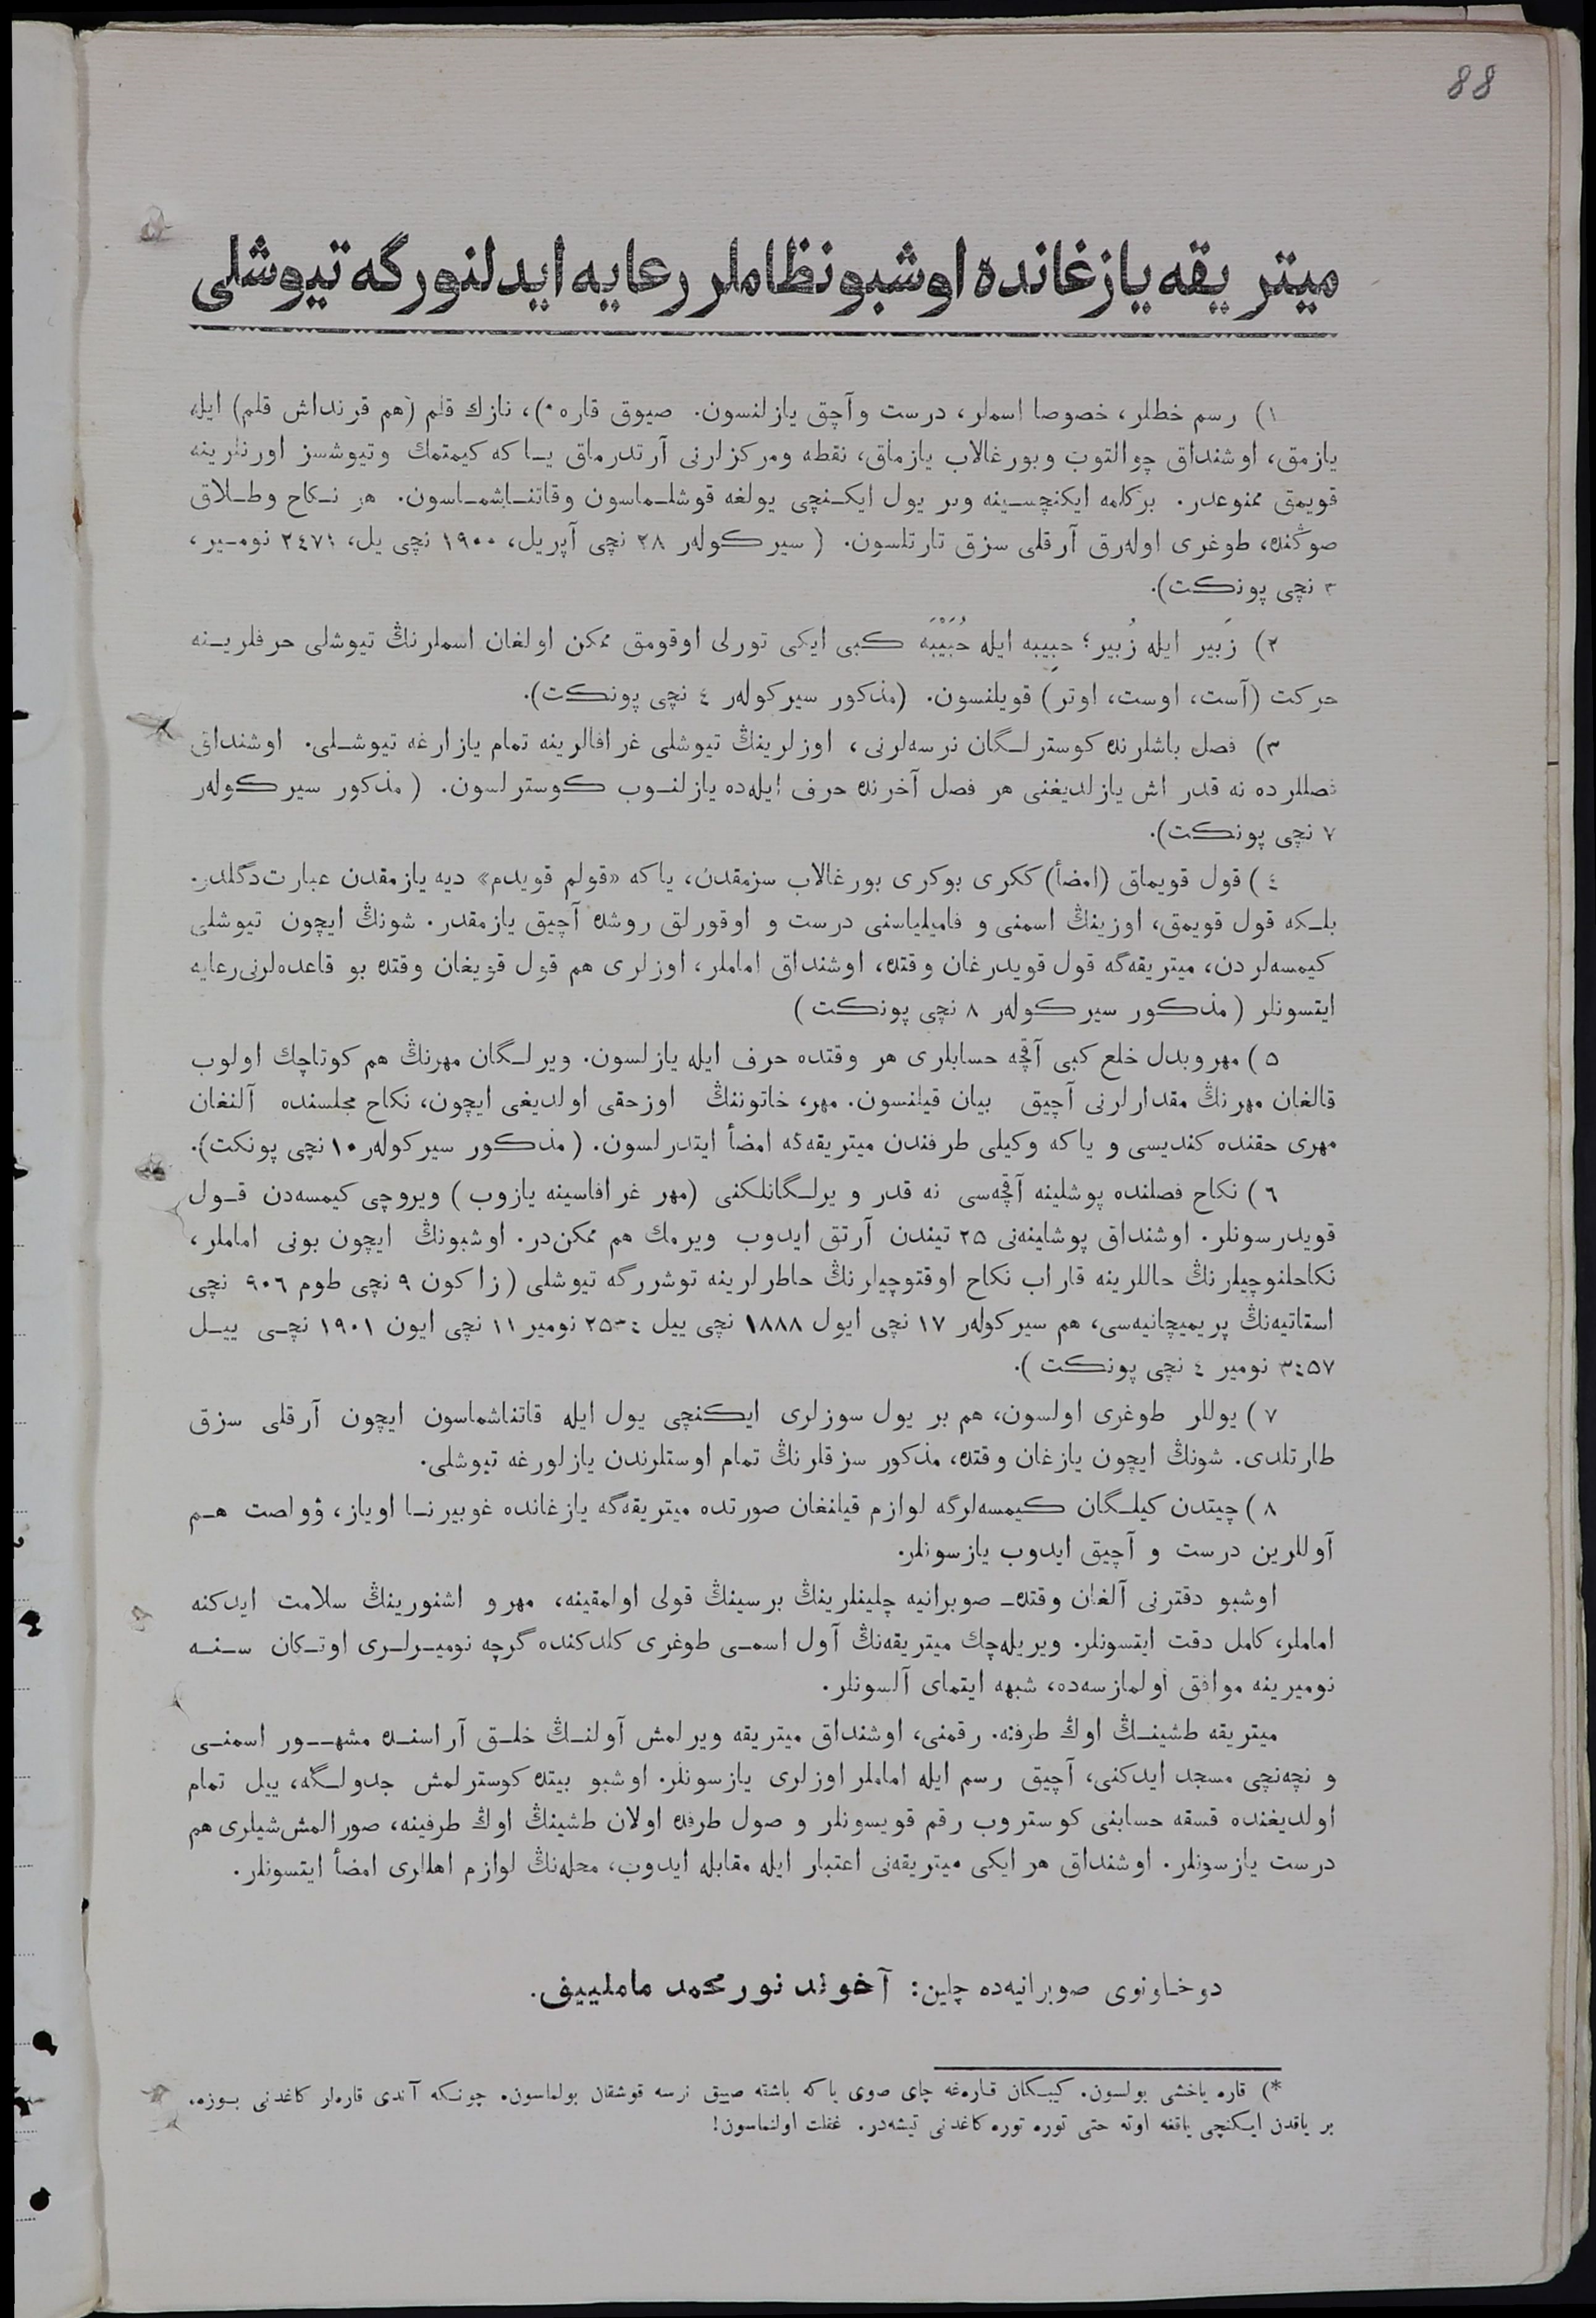 88
میتریقه یازغانده اوشبو نظاملر رعایه ایدلنورگه تیوشلی
١) رسم خطلر، خصوصا اسملر، درست وآچق یازلنسون. صیوق قاره*)، نازك قلم (هم قرنداش قلم) ایله
یازمق، اوشنداق چوالتوب وبورغالاب یازماق، نقطه ومرکزلرنی آرتدرماق یـاکه کیمتمك وتیوشسز اورنلرینه
قویمق ممنوعدر. برکلمه ایکنچسـینه وبر یول ایکـنچی یولغه قوشلـماسون وقاتنـاشمـاسون. هر نـکاح وطـلاق
صوڭنده، طوغری اوله‌رق آرقلی سزق تارتلسون. (سیرکوله‌ر ٢٨ نچی آپریل، ١٩٠٠ نچی یل، ٢٤٧١ نومـیر،
٣ نچی پونکت).
٢) زَبیر ایله زُبیر؛ حبِیبه ایله حُبَیْبَه کبی ایکی تورلی اوقومق ممکن اولغان اسملرنڭ تیوشلی حرفلریـنه
حرکت (آست، اوست، اوتر) قویلنسون. (مذکور سیرکوله‌ر ٤ نچی پونکت).
٣) فصل باشلرنده کوسترلـگان نرسه‌لرنی، اوزلرینڭ تیوشلی غرافالرینه تمام یازارغه تیوشـلی. اوشنداق
فصللرده نه قدر اش یازلدیغنی هر فصل آخرنده حرف ایله‌ده یازلنـوب کوسترلسون. (مذکور سیرکوله‌ر
٧ نچی پونکت).
٤) قول قویماق (امضأ) ککری بوکری بورغالاب سزمقدن، یاکه «قولم قویدم» دیه یازمقدن عبارت دگلدر.
بلـکه قول قویمق، اوزینڭ اسمنی و فامیلیاسنی درست و اوقورلق روشده آچیق یازمقدر. شونڭ ایچون تیوشلی
کیمسه‌لردن، میتریقه‌گه قول قویدرغان وقتده، اوشنداق اماملر، اوزلری هم قول قویغان وقتده بو قاعده‌لرنی رعایه
ایتسونلر (مذکور سیرکوله‌ر ٨ نچی پونکت)
٥) مهر وبدل خلع کبی آقچه حسابلری هر وقتده حرف ایله یازلسون. ویرلـگان مهرنڭ هم کوتاچك اولوب
قالغان مهرنڭ مقدارلرنی آچیق بیان قیلنسون. مهر، خاتوننڭ اوزحقی اولدیغی ایچون، نکاح مجلسنده آلنغان
مهری حقنده کندیسی و یاکه وکیلی طرفندن میتریقه‌گه امضأ ایتدرلسون. (مذکور سیرکوله‌ر ١٠ نچی پونکت).
٦) نکاح فصلنده پوشلینه آقچه‌سی نه قدر و یرلـگانلکنی (مهر غرافاسینه یازوب) ویروچی کیمسه‌دن قـول
قویدرسونلر. اوشنداق پوشلینه‌نی ٢٥ تیندن آرتق ایدوب ویرمك هم ممکن‌در. اوشبونڭ ایچون بونی اماملر،
نکاحلنوچیلرنڭ حاللرینه قاراب نکاح اوقتوچیلرنڭ خاطرلرینه توشررگه تیوشلی (زاکون ٩ نچی طوم ٩٠٦ نچی
استاتیه‌نڭ پریمیچانیه‌سی، هم سیرکوله‌ر ١٧ نچی ایول ١٨٨٨ نچی ییل ٢٥٠٤ نومیر ١١ نچی ایون ١٩٠١ نچـی ییـل
٣٤٥٧ نومیر ٤ نچی پونکت).
٧) یوللر طوغری اولسون، هم بر یول سوزلری ایکنچی یول ایله قاتناشماسون ایچون آرقلی سزق
طارتلدی. شونڭ ایچون یازغان وقتده، مذکور سزقلرنڭ تمام اوستلرندن یازلورغه تیوشلی.
٨) چیتدن کیلـگان کیمسه‌لرگه لوازم قیلنغان صورتده میتریقه‌گه یازغانده غوبیرنـا اویاز، ۋولصت هـم
آوللرین درست و آچیق ایدوب یازسونلر.
اوشبو دفترنی آلغان وقتده صوبرانیه چلینلرینڭ برسینڭ قولی اولمقینه، مهر و اشنورینڭ سلامت ایدکنه
اماملر، کامل دقت ایتسونلر. ویریله‌چك میتریقه‌نڭ آول اسمـی طوغری کلدکنده گرچه نومیـرلـری اوتـکان سـنـه
نومیرینه موافق اولمازسه‌ده، شبهه ایتمای آلسونلر.
میتریقه طشینـڭ اوڭ طرفنه. رقمنی، اوشنداق میتریقه ویرلمش آولنـڭ خلـق آراسنـده مشهـور اسمنـی
و نچه‌نچی مسجد ایدکنی، آچیق رسم ایله اماملر اوزلری یازسونلر. اوشبو بیتده کوسترلمش جدولـگه، ییل تمام
اولدیغنده قسقه حسابنی کوستروب رقم قویسونلر و صول طرفده اولان طشینڭ اوڭ طرفینه، صورالمش شیلری هم
درست یازسونلر. اوشنداق هر ایکی میتریقه‌نی اعتبار ایله مقابله ایدوب، محله‌نڭ لوازم اهاللری امضأ ایتسونلر.
دوخاونوی صوبرانیه‌ده چلین: آخوند نورمحمد ماملییف.
*) قاره یاخشی بولسون. کیبـکان قاره‌غه چای صوی یاکه باشقه صیق نرسه قوشقان بولماسون. چونـکه آندی قاره‌لر کاغدنی بـوزه.
بر یاقدن ایـکنچی یاققه اوته حتی توره توره کاغدنی تیشه‌در. غفلت اولنماسون!